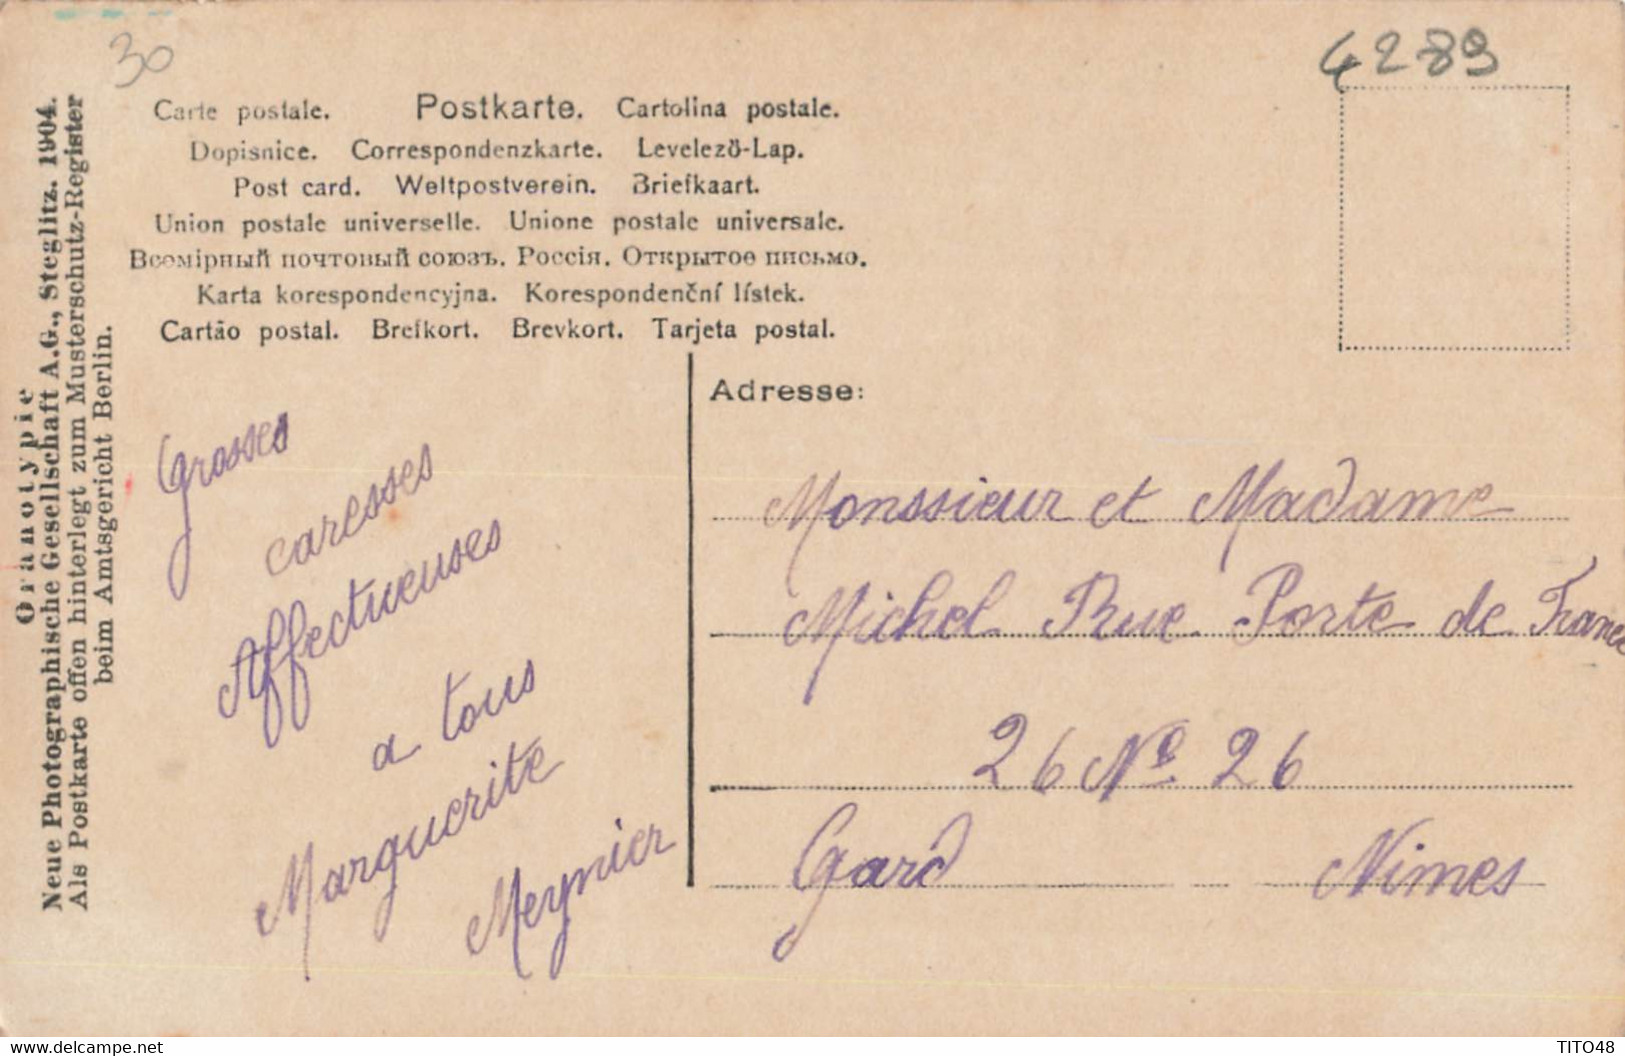 30
4289
Carte postale. Postkarte. Cartolina postale.
Dopisnice. Correspondenzkarte. Levelező-Lap.
Post card. Weltpostverein. Briefkaart.
Union postale universelle. Unione postale universale.
Всемірный почтовый союзъ. Россія. Открытое письмо.
Karta korespondencyjna. Korespondenční lístek.
Cartão postal. Brefkort. Brevkort. Tarjeta postal.
Oranotypie
Neue Photographische Gesellschaft A.G., Steglitz. 1904.
Als Postkarte offen hinterlegt zum Musterschutz-Register
beim Amtsgericht Berlin.
Grosses
caresses
Affectueuses
a tous
Marguerite
Meynier
Adresse:
Monssieur et Madame
Michel Rue Porte de France
26 No 26
Gard Nimes
www.delcampe.net
TITO48